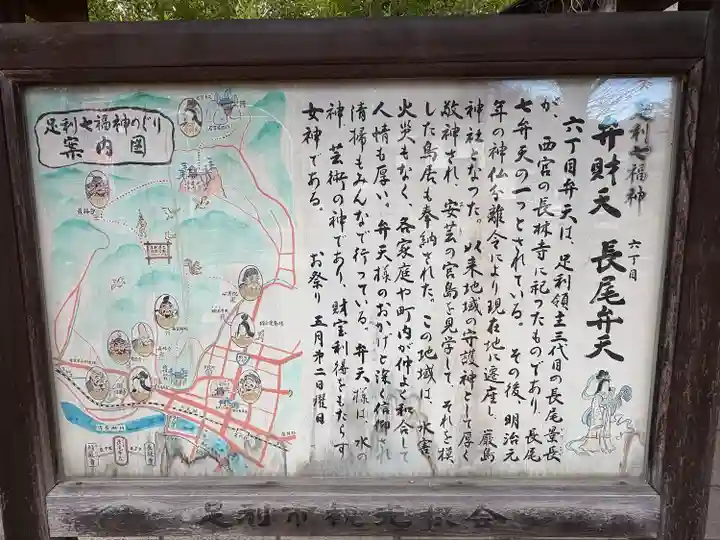 足利七福神
弁財天 六丁目 長尾弁天
六丁目弁天は、足利領主三代目の長尾景長
が、西宮の長林寺に祀ったものであり、長尾
七弁天の一つとされている。その後、明治元
年の神仏分離令により現在地に遷座し、厳島
神社となった。以来地域の守護神として厚く
敬神され、安芸の宮島を見学して、それを模
した鳥居も奉納された。この地域は、水害
火災もなく、各家庭や町内が仲よく和合して
人情も厚い。弁天様のおかげと深く信仰され
清掃もみんなで行っている。弁天様は、水の
神、芸術の神であり、財宝利得をもたらす
女神である。
お祭り 五月第二日曜日
足利七福神めぐり
案内図
足利市観光協会